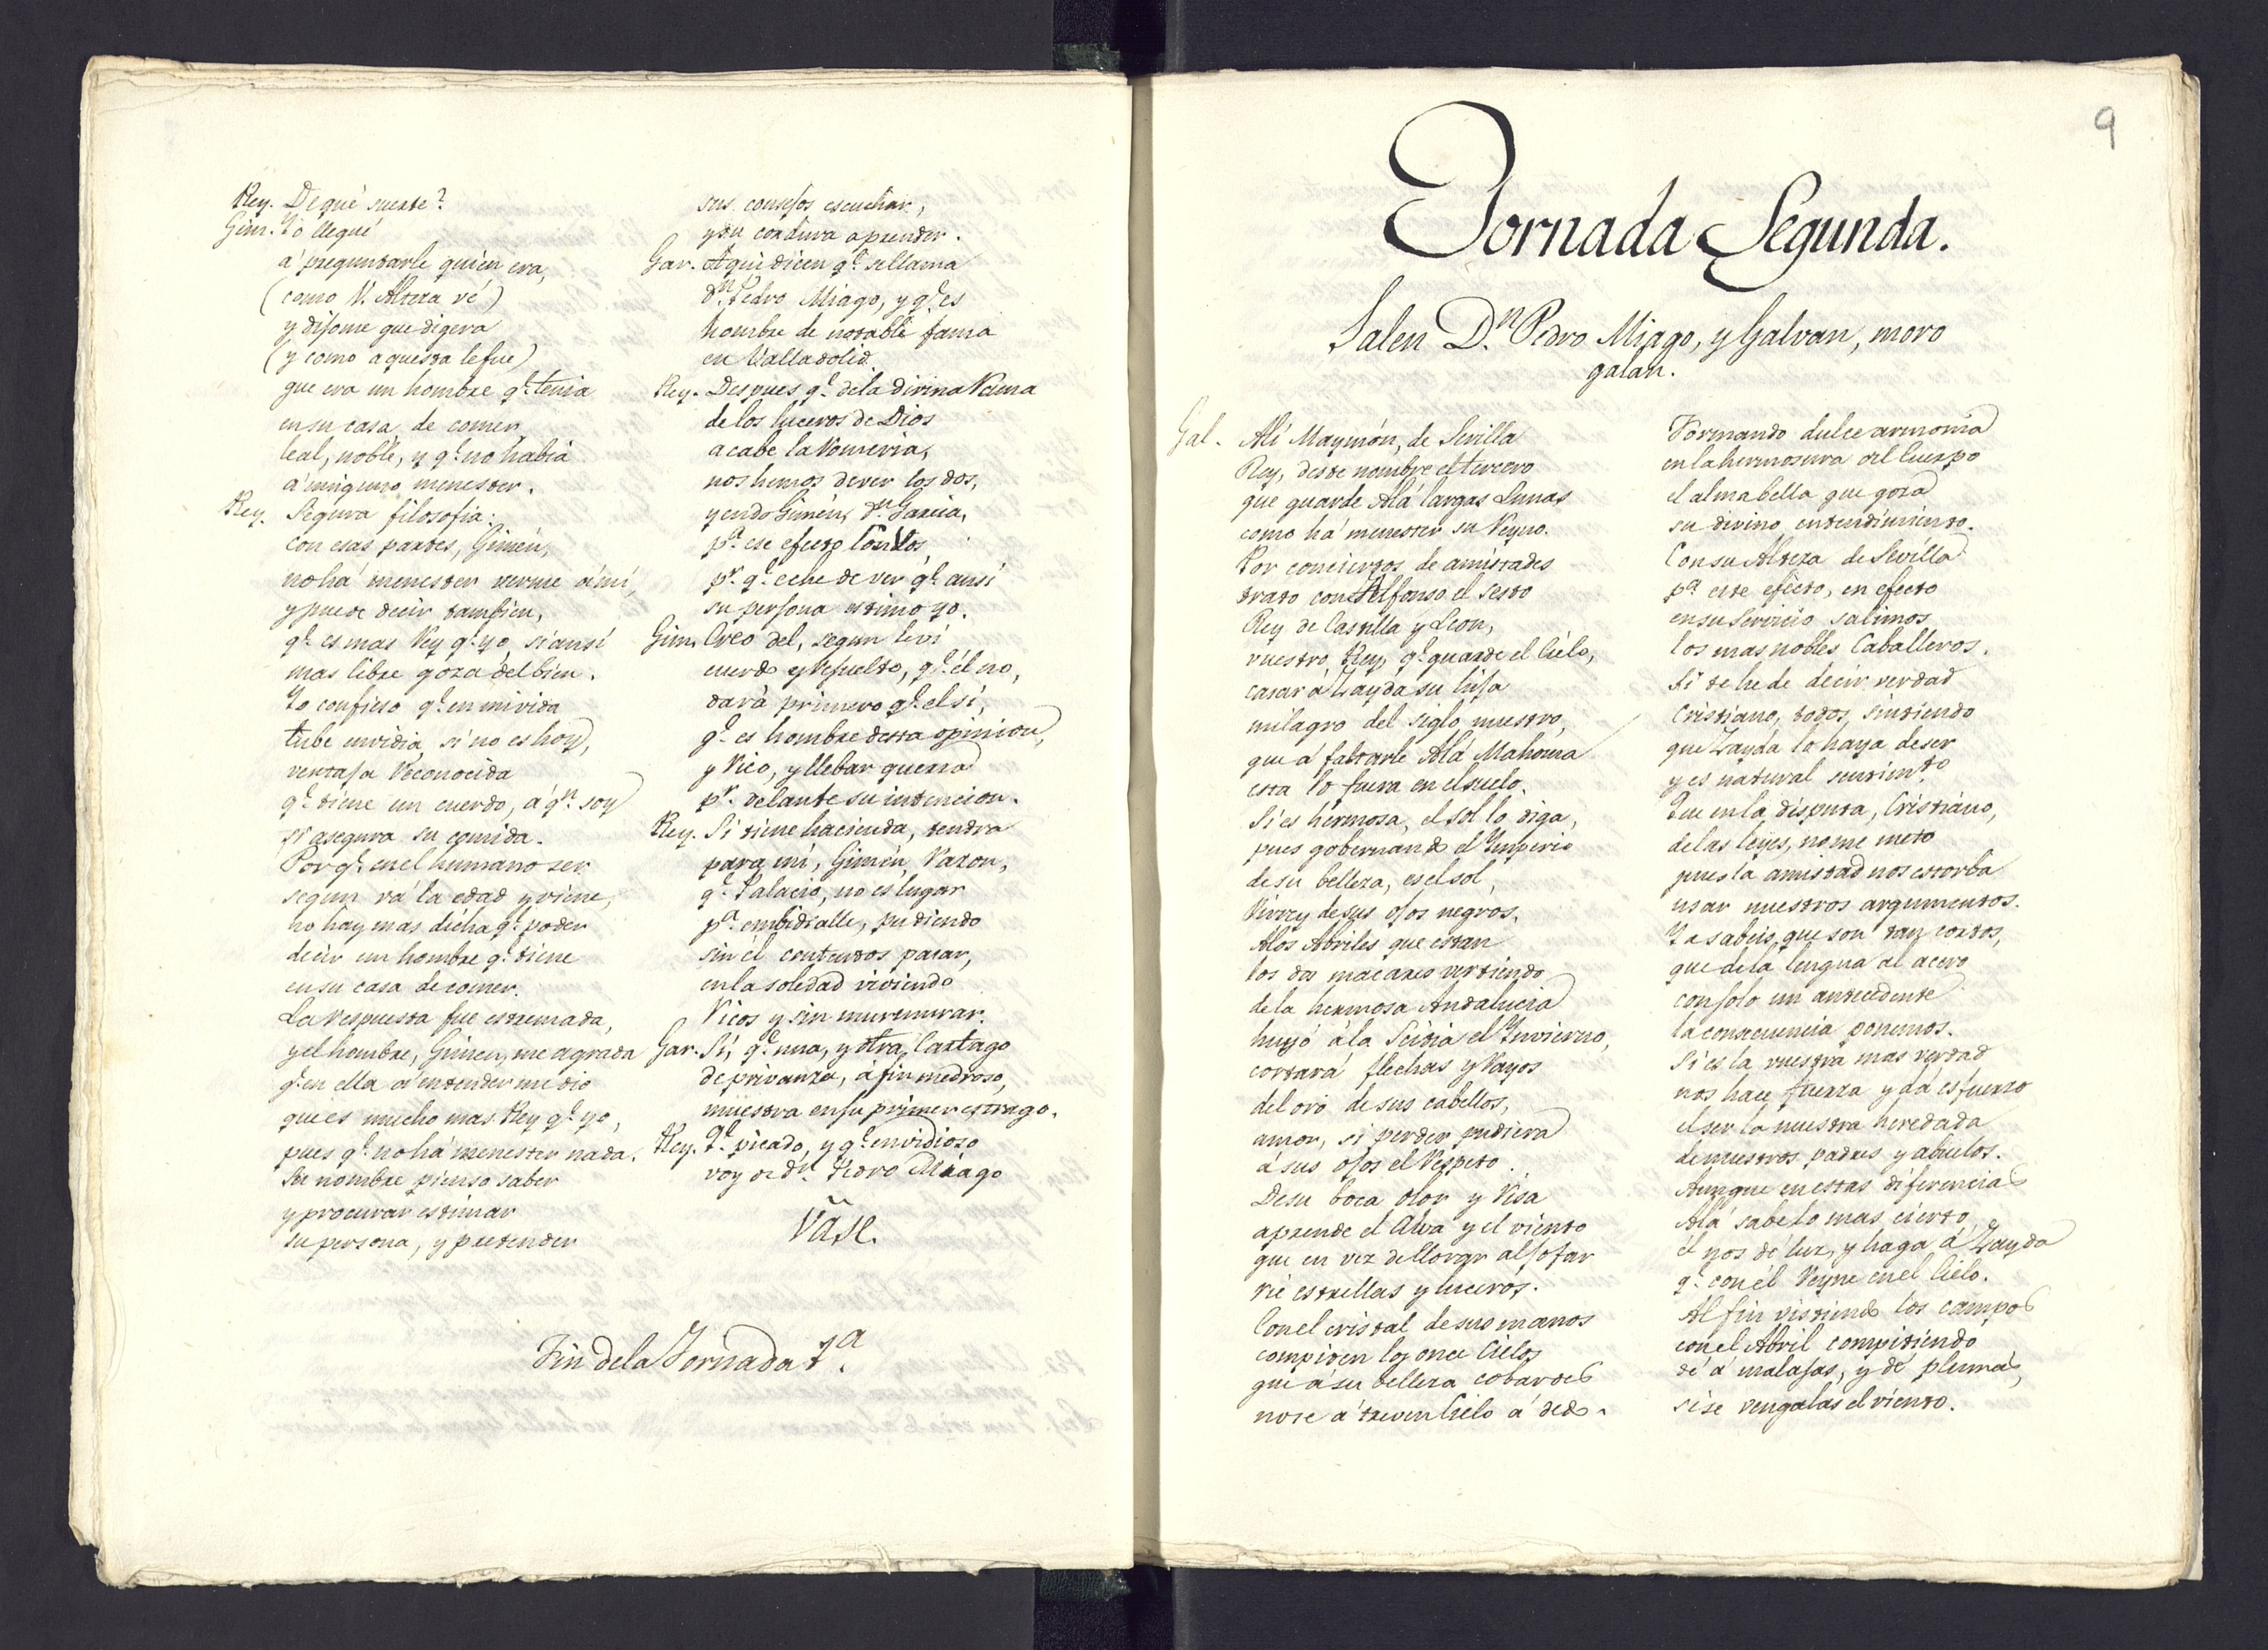 Rey. De qué suerte?
Gim. Yo llegué
á preguntarle quien era,
(como V. Alteza vé)
y dijome que digera
(y como aquesta le fue)
que era un hombre q.e tenia
en su casa de comer,
leal, noble, y q.e no habia
á ninguno menester.
Rey. Segura filosofia:
con esas partes, Gimén,
no há menester verme á mí,
y puede decir tambien,
q.e es mas Rey q.e yo, si ansí
mas libre goza del bien.
Yo confieso q.e en mi vida
tube envidia, si no es hoy,
ventaja reconocida
q.e tiene un cuerdo, á q.n soy
si asegura su comida.
Porq.e en el humano ser
segun vá la edad y viene,
no hay mas dicha q.e poder
decir un hombre q.e tiene
en su casa de comer.
La respuesta fue estremada,
y el hombre, Gimen, me agrada
q.e en ella á entender me dio
que es mucho mas Rey q.e yo,
pues q.e no há menester nada.
Su nombre pienso saber
y procurar estimar
su persona, y pretender
sus consejos escuchar,
y su cordura aprender.
Gar. Aqui dicen q.e se llama
d.n Pedro Miago, y q.e es
hombre de notable fama
en Valladolid.
Rey. Despues q.e de la divina Rama
de los luceros de Dios
acabe la Romeria,
nos hemos de ver los dos,
yendo Gimén, d.n Garcia,
p.a ese efecto con vos,
p.r q.e eche de ver q.e ansí
su persona estimo yo.
Gim. Creo del, segun le ví
cuerdo y resuelto, q.e él no,
dará primero q.e el sí,
q.e es hombre desta opinion,
y rico, y llebar querra
p.r delante su intencion.
Rey. Si tiene hacienda, tendra
para mí, Gimén, razon,
q.e Palacio, no es lugar
p.a embidialle, pudiendo
sin él contentos pasar,
en la soledad viviendo
ricos y sin murmurar.
Gar. Si, q.e una, y otra Cartago
de privanza, á fin medroso,
muestra en su primer estrago.
Rey. Q.e picado, y q.e envidioso
voy de d.n Pedro Miago
Vãse.
Fin de la Jornada 1.a
9
Jornada Segunda.
Salen D.n Pedro Miago, y Galvan, moro
galan.
Gal. Alí Maymón, de Sevilla
Rey, deste nombre el tercero
que guarde Alá largas Lunas
como há menester su Reyno.
Por conciertos de amistades
trató con Alfonso el Sesto
Rey de Castilla y Leon,
vuestro Rey, q.e guarde el Cielo,
casar á Zayda su hija
milagro del siglo nuestro,
que á faltarle Alá Mahoma
esta lo fuera en el suelo.
Si es hermosa, el sol lo diga,
pues gobernando el Imperio
de su belleza, es el sol,
Virrey de sus ojos negros.
A los Abriles que estan
los dos macareo vertiendo
de la hermosa Andalucia
huyó á la Scitia el Invierno,
cortará flechas y rayos
del oro de sus cabellos,
amor, si perder pudiera
á sus ojos el respeto.
De su boca olor y risa
aprende el Alva y el viento
que en vez de llorar aljofar
rie estrellas y luceros.
Con el cristal de sus manos
compiten los once Cielos
que á su belleza cobardes
no se atreven Cielo á dedo.
Formando dulce armonia
en la hermosura del cuerpo
el alma bella que goza
su divino entendimiento.
Con su Alteza de Sevilla
p.a este efecto, en efecto
en su servicio salimos
los mas nobles Caballeros.
Si te he de decir verdad
Cristiano, todos sintiendo
que Zayda lo haya de ser
y es natural sentim.to
Que en la disputa, Cristiano,
de las leyes, no me meto
pues la amistad nos estorba
usar nuestros argumentos.
Ya sabeis, que son tan cortos,
que de la lengua al acero
con solo un antecedente
la consecuencia ponemos.
Si es la vuestra mas verdad
nos hace fuerza y dá esfuerzo
el ser la nuestra heredada
de nuestros padres y abuelos.
Aunque en estas diferencias
Alá sabe lo mas cierto,
él nos dé luz, y haga á Zayda
q.e con él Reyne en el Cielo.
Al fin vistiendo los campos
con el Abril compitiendo
de á malajas, y de plumas,
si se rengalas el viento.